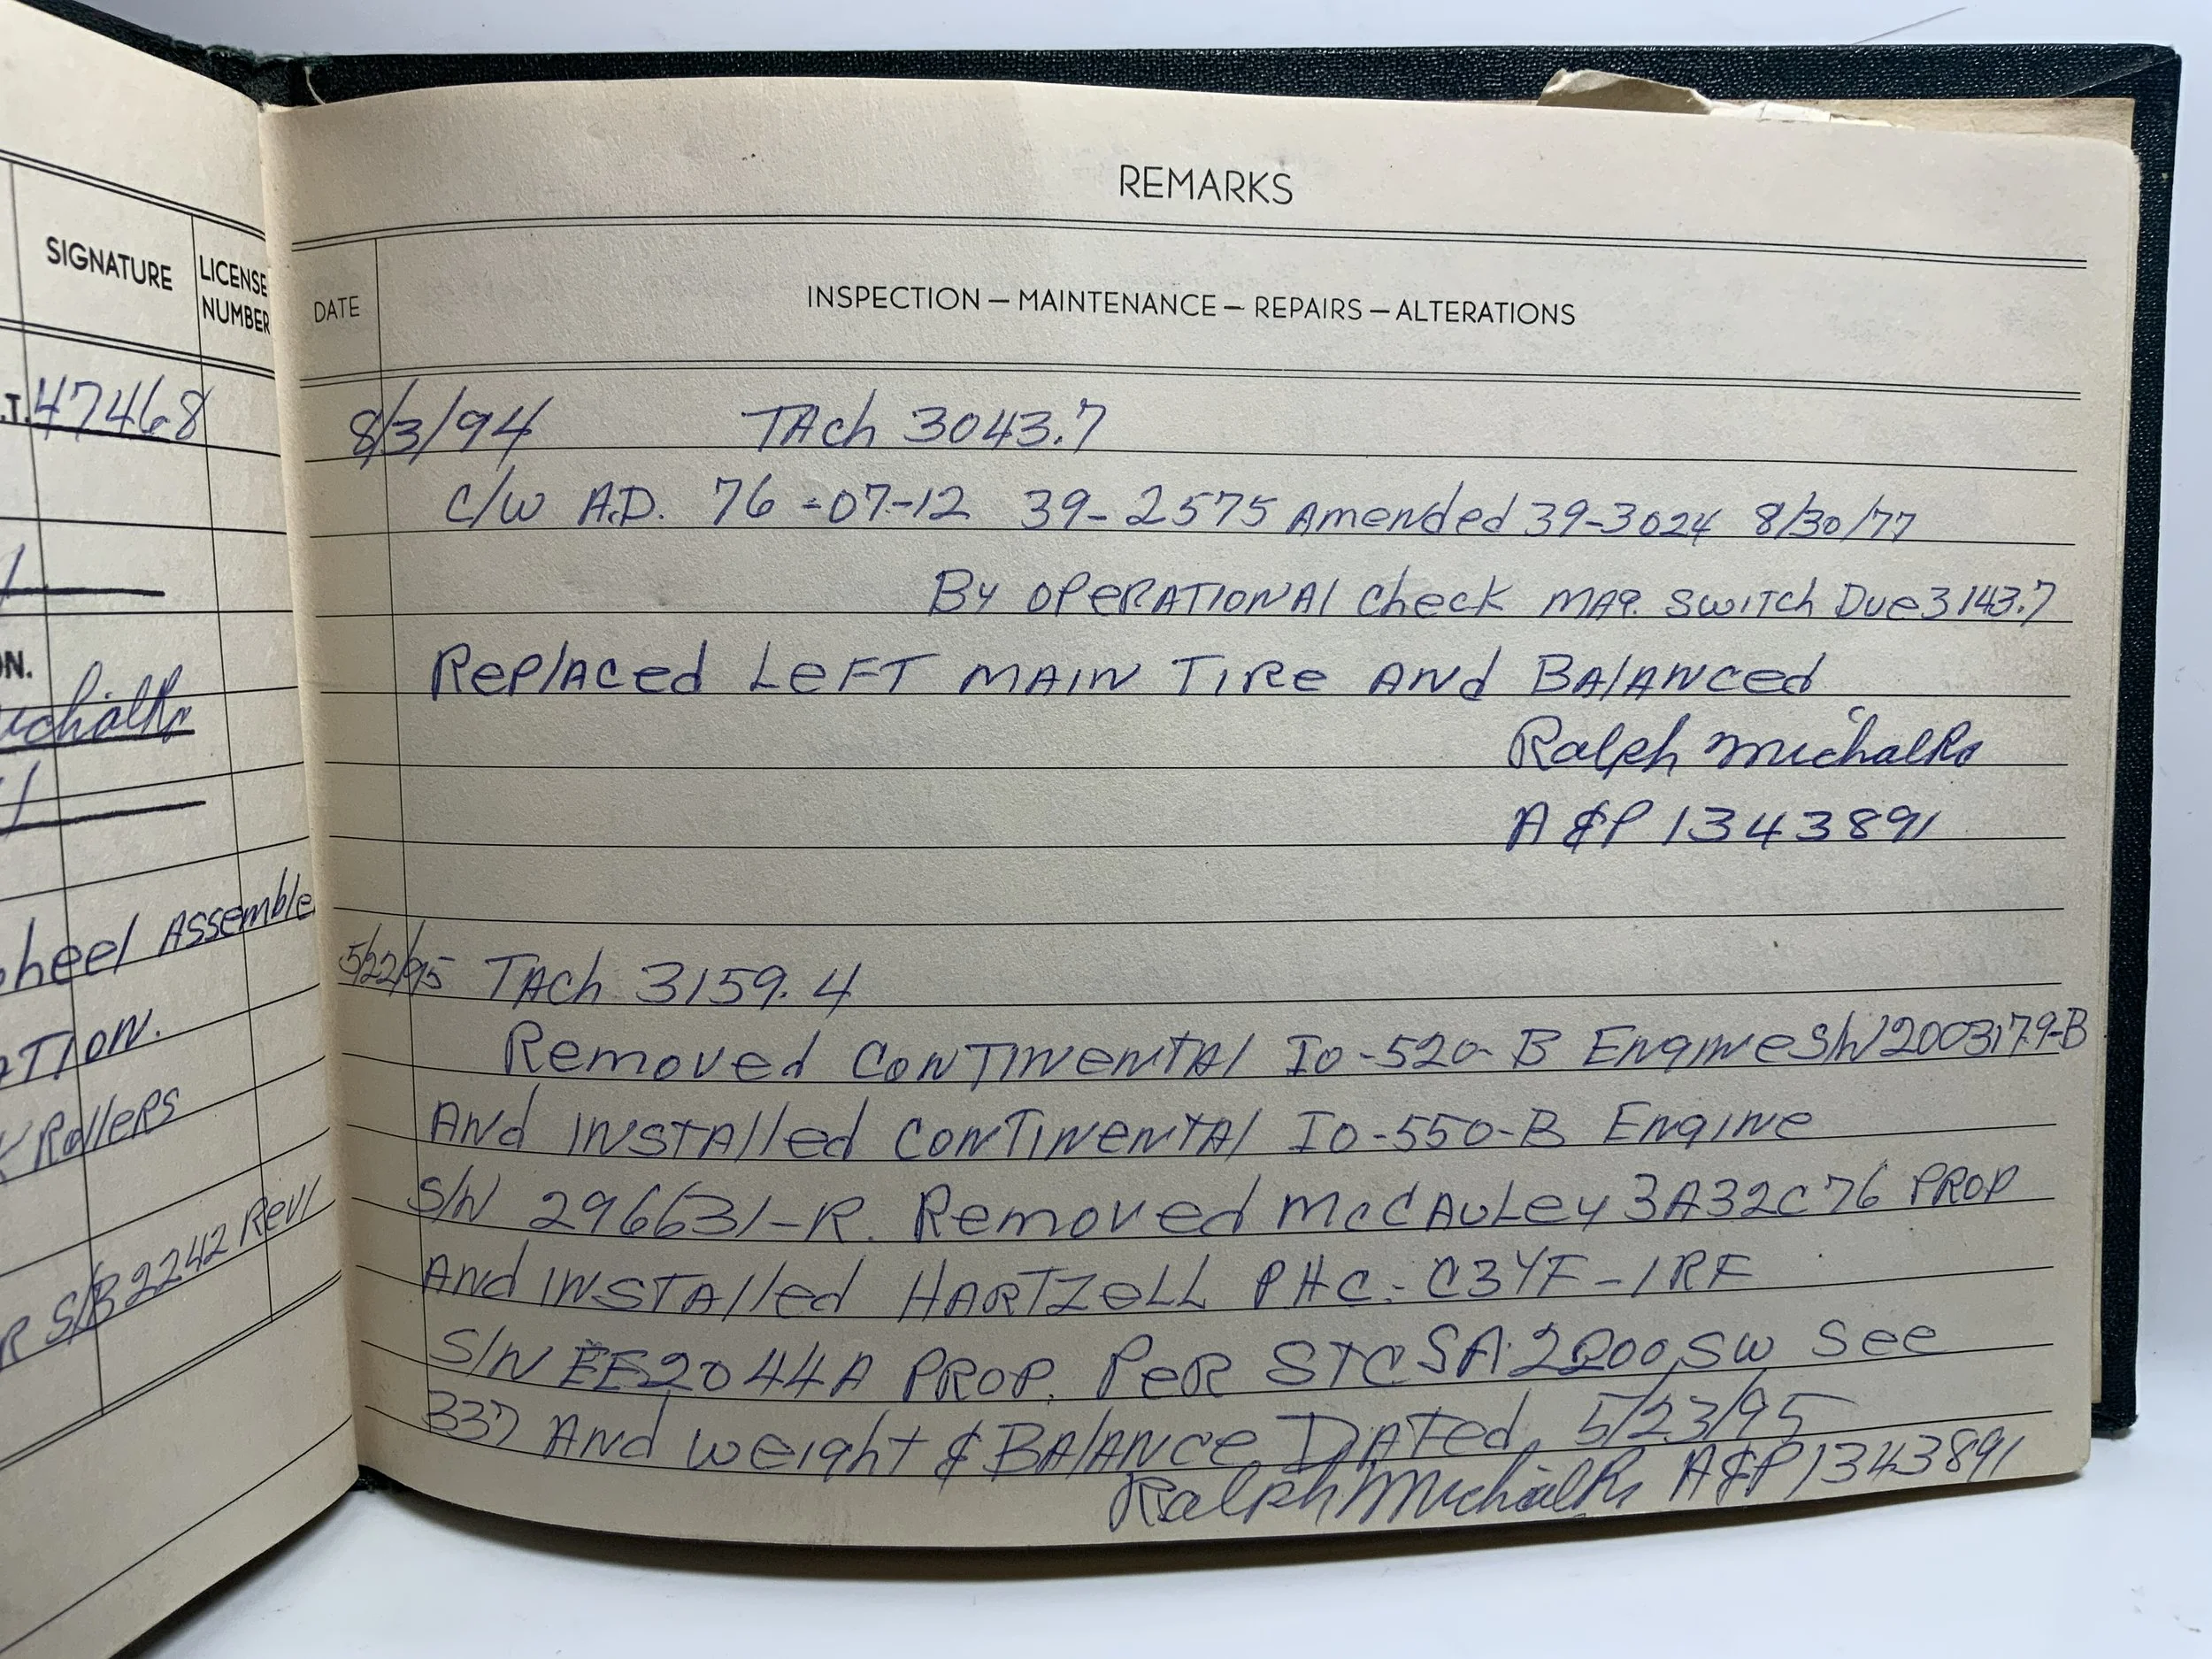 SIGNATURE
LICENSE
NUMBER
.T. 47468
ON.
heel Assemble
ATION.
Rollers
R S/B 2242 Rev/
REMARKS
DATE
INSPECTION — MAINTENANCE — REPAIRS — ALTERATIONS
8/3/94 TAch 3043.7
C/W A.D. 76-07-12 39-2575 Amended 39-3024 8/30/77
By OPERATIONAL Check MAG. SWITCH Due 3143.7
Replaced Left MAIN TIRE AND BALANCED
Ralph Michalks
A&P 1343891
5/22/95 TAch 3159.4
Removed CONTINENTAL IO-520-B Engine S/N 200317.9-B
And INSTAlled CONTINENTAL IO-550-B Engine
S/N 296631-R. Removed McCAULey 3A32C76 PROP
And INSTAlled HARTZELL PHC-C3YF-1RF
S/N EE2044A PROP. PER STC SA2200SW See
337 And Weight & BALANCE DATed 5/23/95
Ralph Michalks A&P 1343891